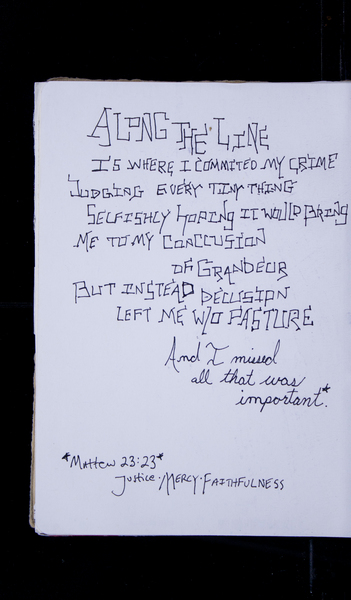 ALONG THE LINE
IS WHERE I COMMITED MY CRIME
JUDGING EVERY TINY THING
SELFISHLY HOPING IT WOULD BRING
ME TO MY CONCCUSION
OF GRANDEUR
BUT INSTEAD DECUSION
LEFT ME W/O PASTURE
And I missed
all that was
important*.
*Mattew 23:23*
Justice · MERCY · FAITHFULNESS